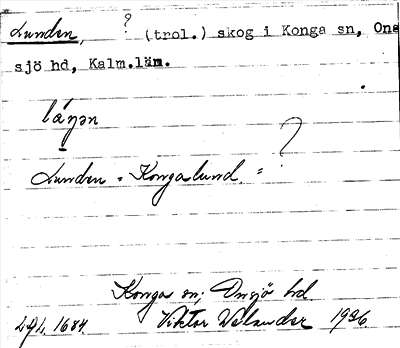 Lunden, ? (trol.) skog i Konga sn, Ons
sjö hd, Kalm.län.
Lunden = Kongalund = ?
Konga sn; Onsjö hd
Lgl. 1684. Viktor Welander 1936.